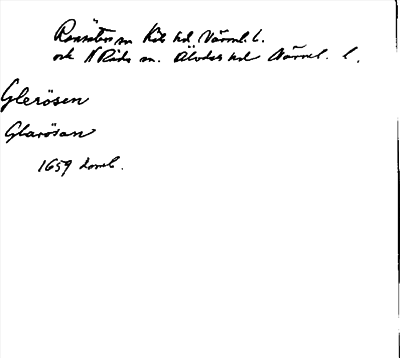 Ransäters sn Kils hd Värml. l.
och N Råda sn. Älvdals hd Värml. l.
Glerösen
Glarösan
1659 Doml.